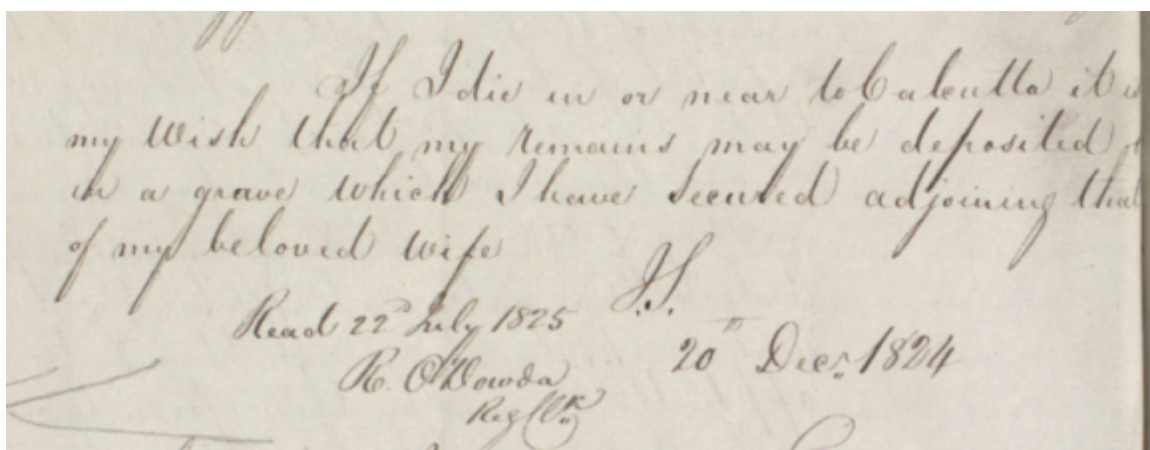 If I die in or near to Calcutta it is
my Wish that my remains may be deposited
in a grave which I have Secured adjoining that
of my beloved Wife
J.S.
Read 22d July 1825
20th Decr. 1824
R. O'Dowda
Reg